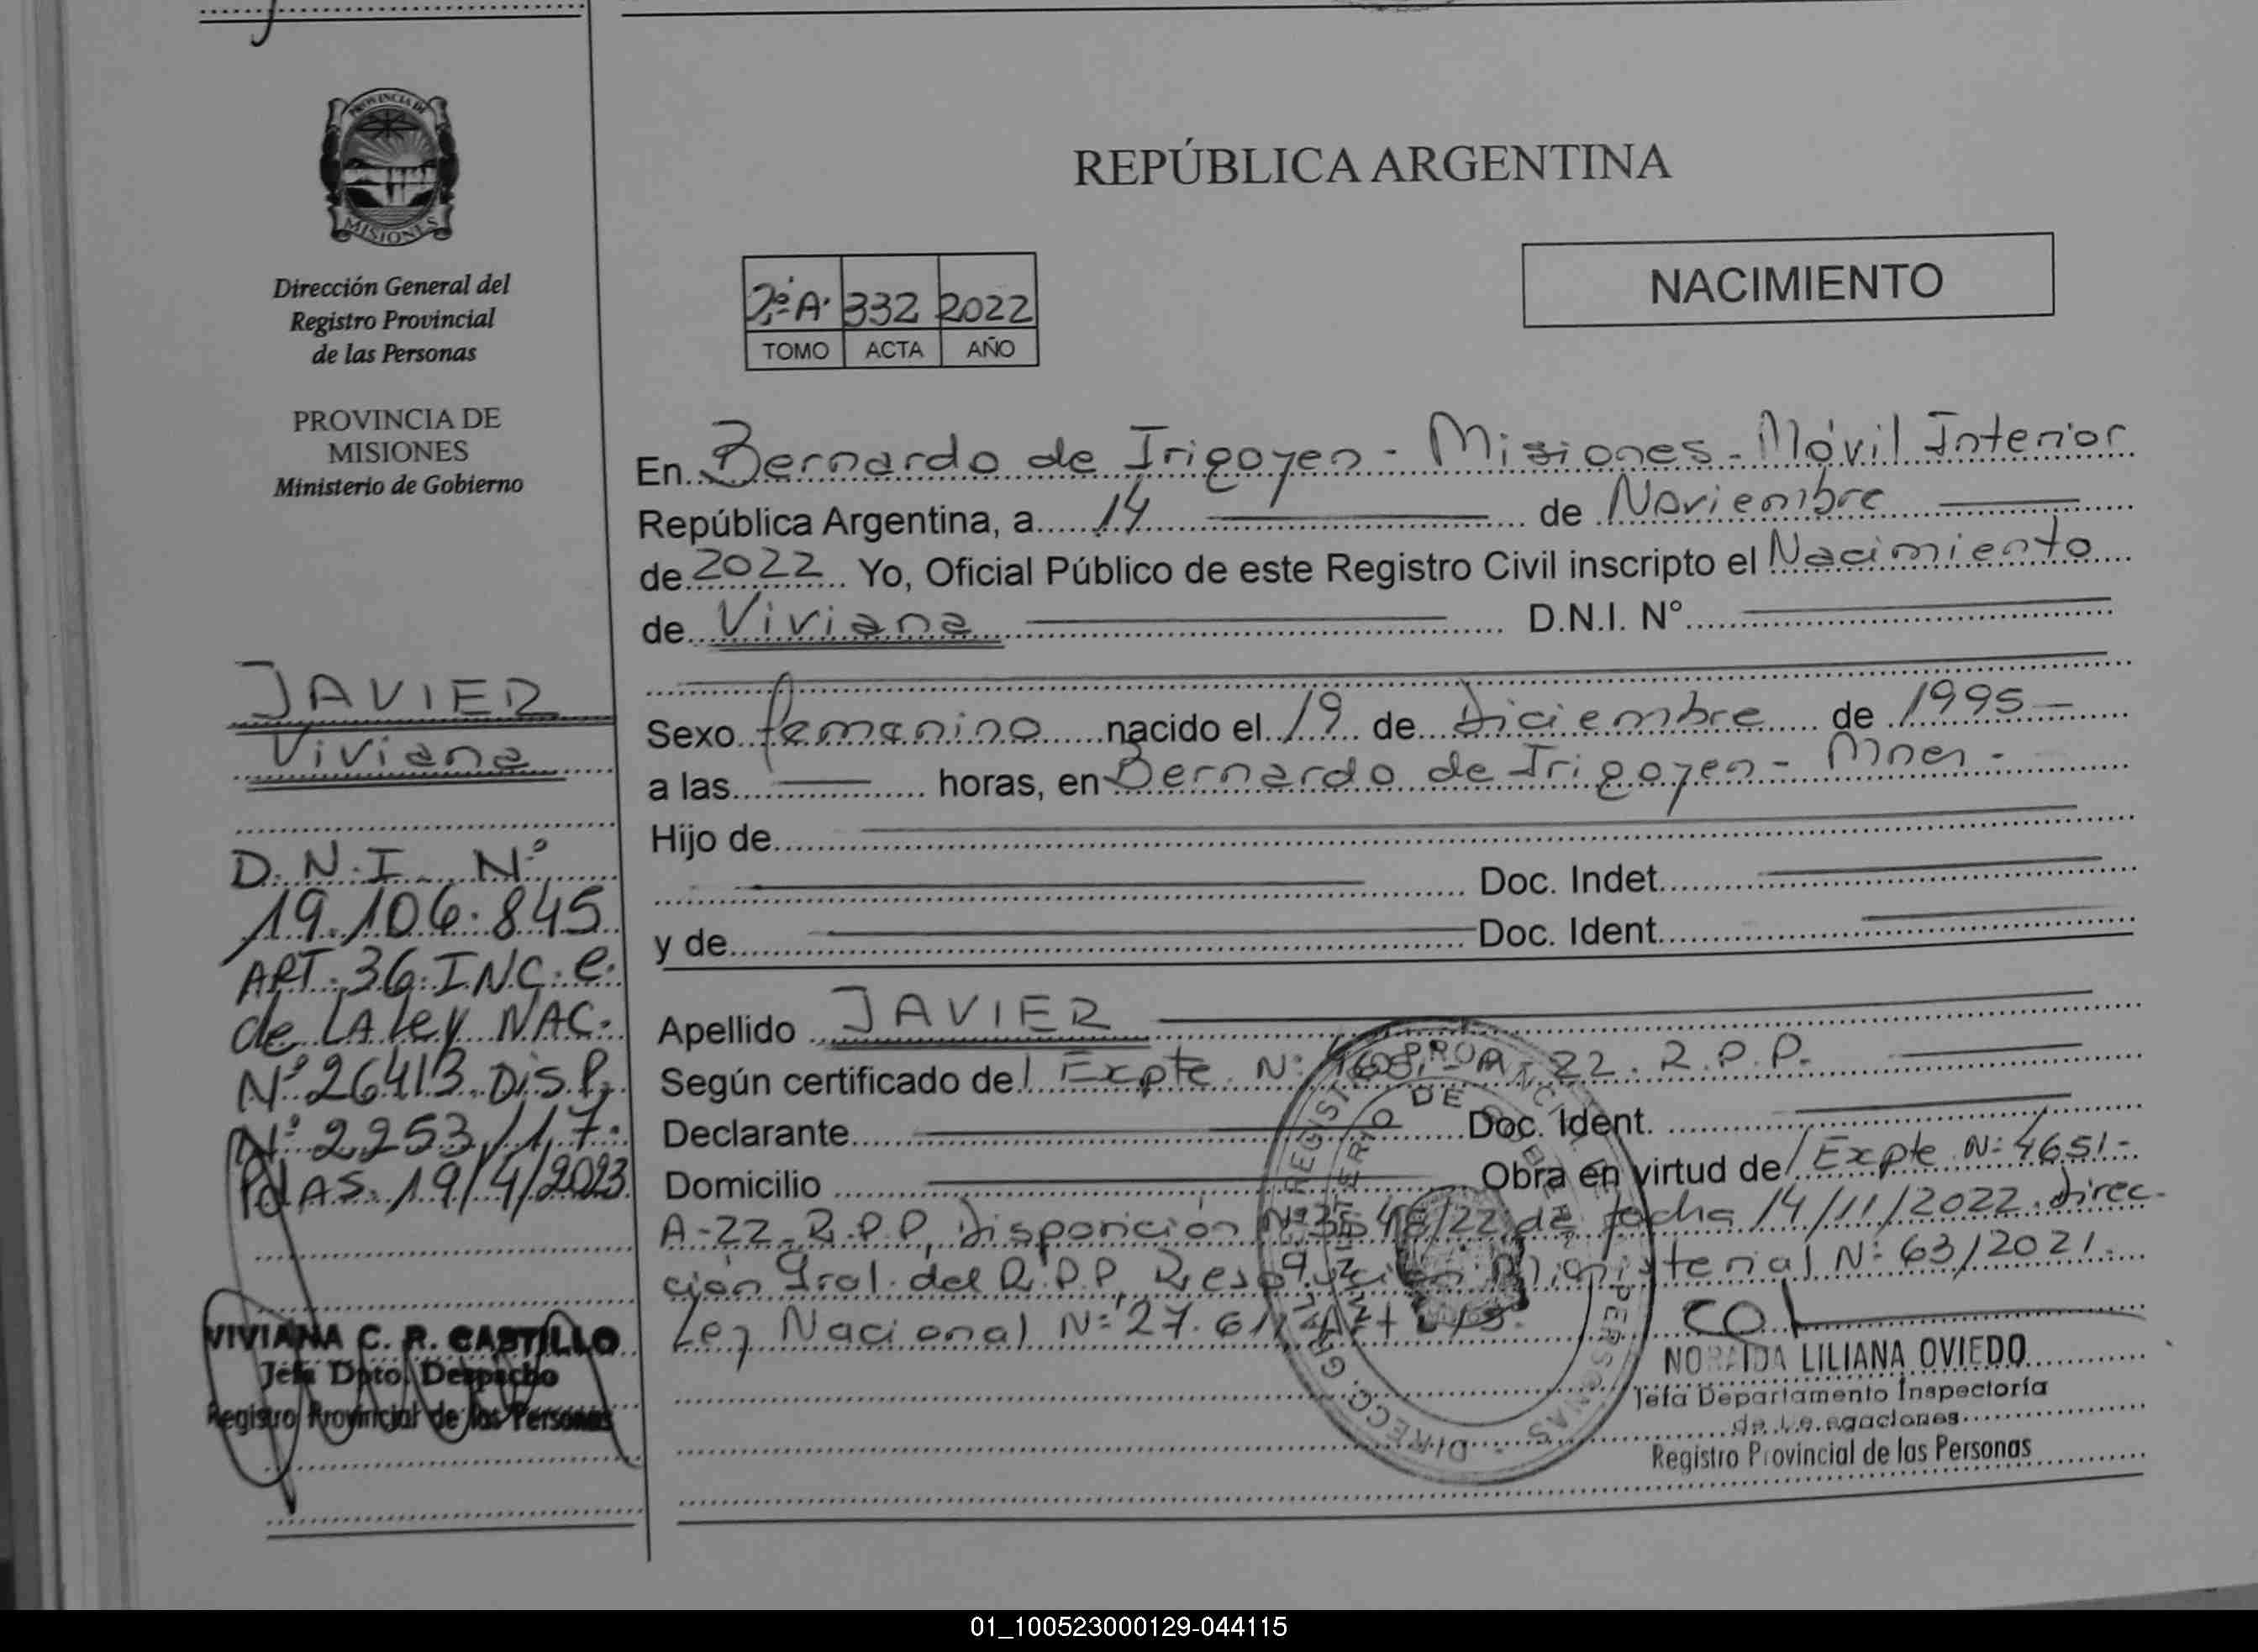 PROVINCIA DE
MISIONES
Dirección General del
Registro Provincial
de las Personas
PROVINCIA DE
MISIONES
Ministerio de Gobierno
JAVIER
Viviana
D.N.I. Nº
19.106.845
ART. 36. INC. e.
de LA ley NAC.
Nº 26413. DiS.P.
Nº 2253/17.
PdAS. 19/4/2023
VIVIANA C. R. CASTILLO
Jefa Dpto. Despacho
Registro Provincial de las Personas
REPÚBLICA ARGENTINA
NACIMIENTO
2º A. 332 2022
TOMO ACTA AÑO
En Bernardo de Irigoyen - Misiones - Móvil Interior
República Argentina, a 14 de Noviembre
de 2022 Yo, Oficial Público de este Registro Civil inscripto el Nacimiento
de Viviana D.N.I. N°
Sexo femenino nacido el 19 de Diciembre de 1995
a las horas, en Bernardo de Irigoyen - Mnes -
Hijo de
Doc. Indet.
y de Doc. Ident.
Apellido JAVIER
Según certificado del Expte Nº A-22. R.P.P.
Declarante Doc. Ident.
Domicilio Obra en virtud del Expte Nº 4651-
A-22-R.P.P, Disposición de fecha 14/11/2022. Direc-
ción Gral. del R.P.P, Resolución Ministerial Nº 63/2021.
Ley Nacional Nº 27.611 Art
NORAIDA LILIANA OVIEDO
Jefa Departamento Inspectoría
de Delegaciones
Registro Provincial de las Personas
01_100523000129-044115